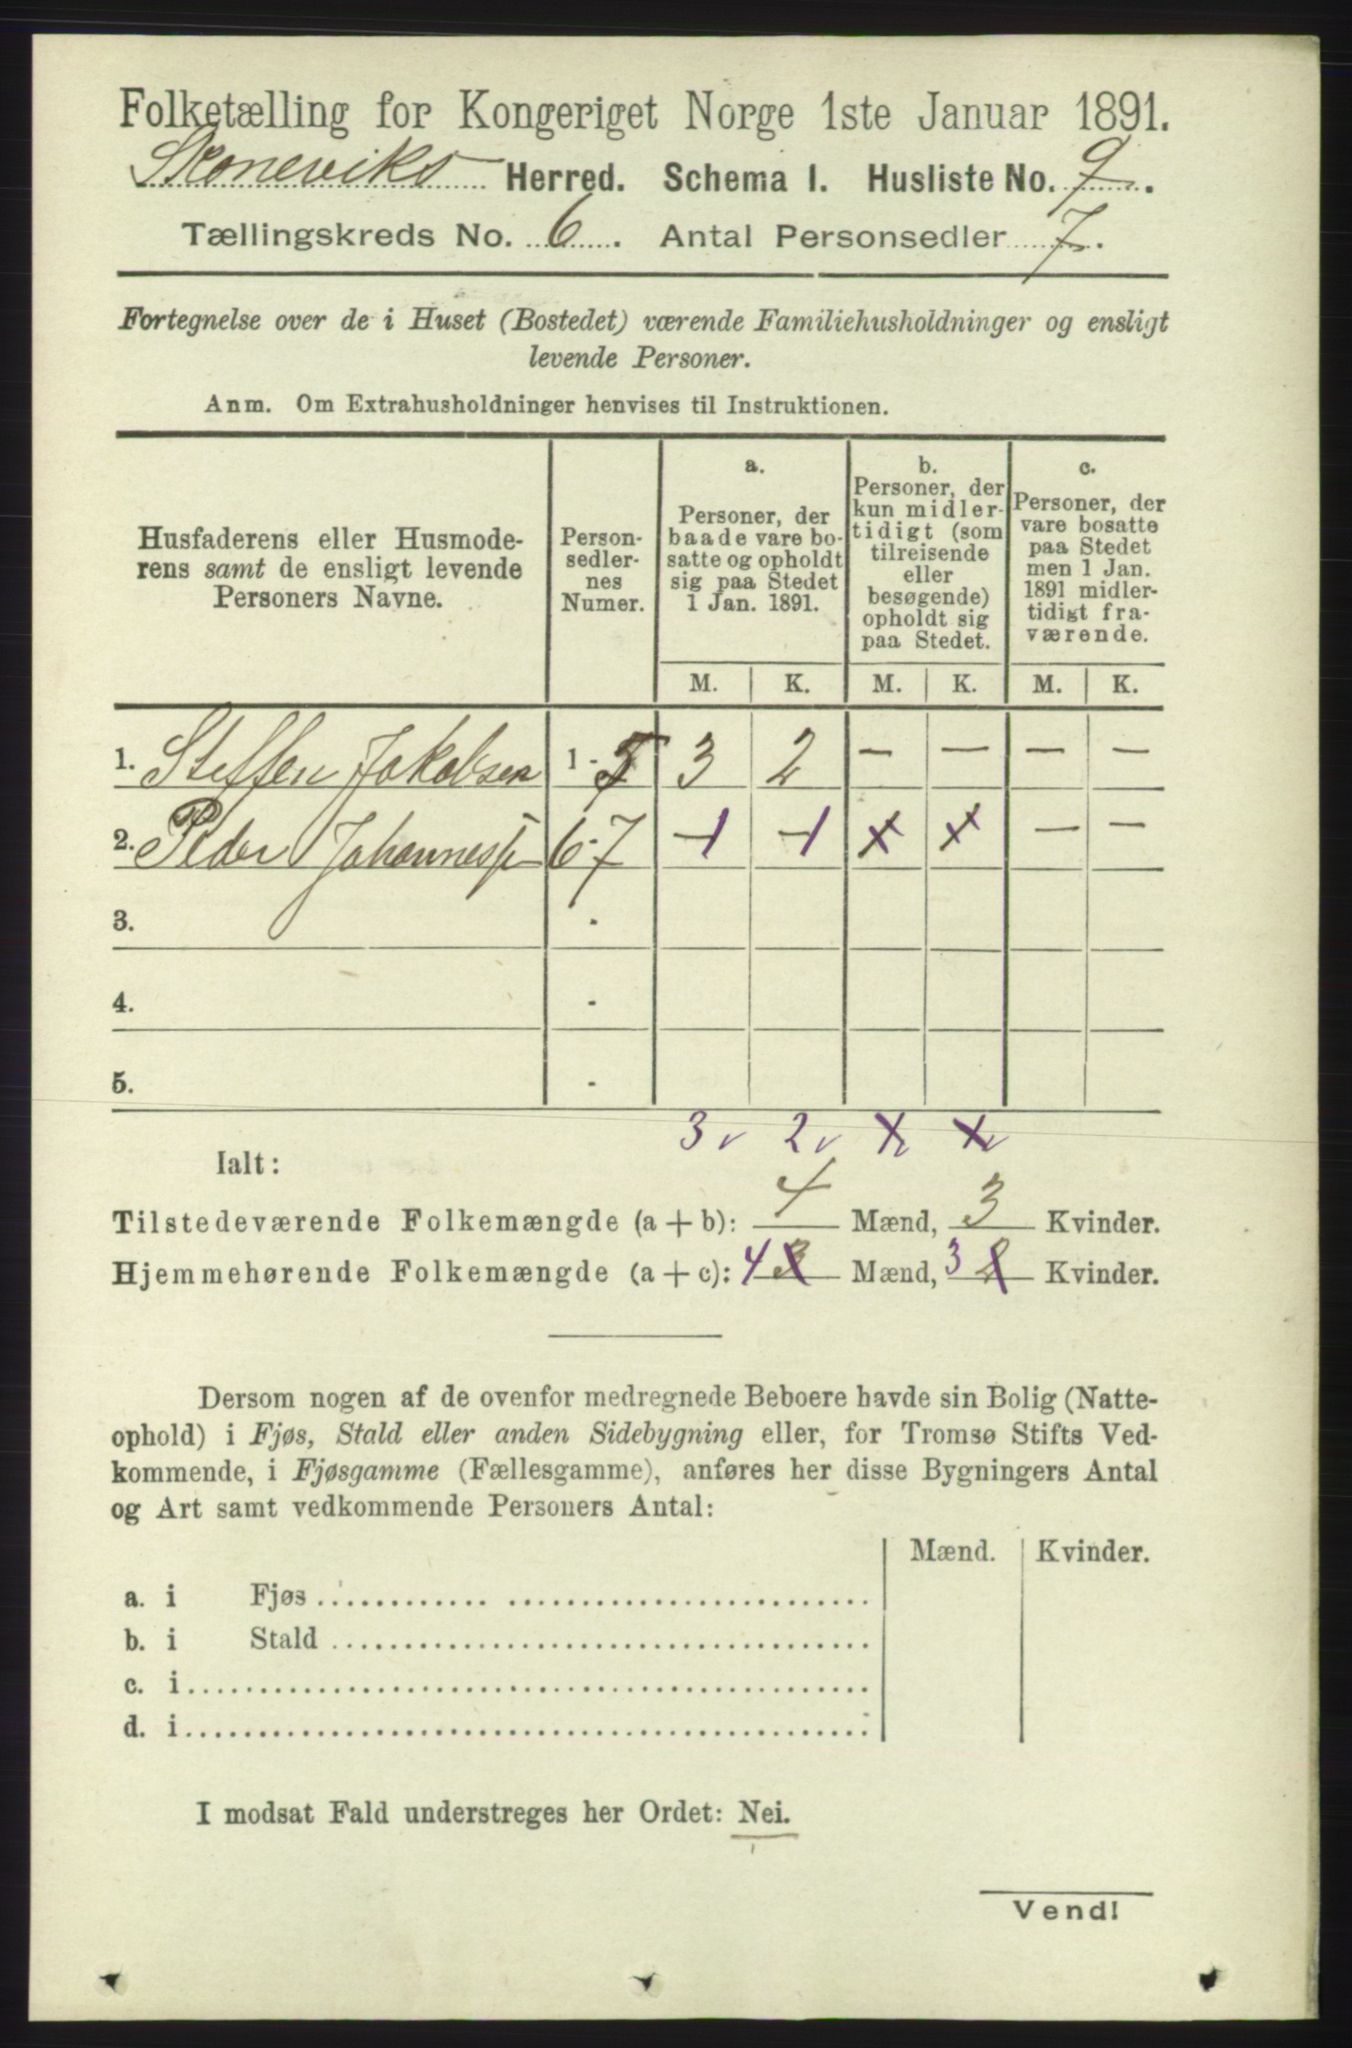 Folketælling for Kongeriget Norge 1ste Januar 1891.
Skoneviks Herred. Schema I. Husliste No. 9.
Tællingskreds No. 6. Antal Personsedler 7.
Fortegnelse over de i Huset (Bostedet) værende Familiehusholdninger og ensligt
levende Personer.
Anm. Om Extrahusholdninger henvises til Instruktionen.
Husfaderens eller Husmode-
rens samt de ensligt levende
Personers Navne.
Person-
sedler-
nes
Numer.
a.
Personer, der
baade vare bo-
satte og opholdt
sig paa Stedet
1 Jan. 1891.
b.
Personer, der
kun midler-
tidigt (som
tilreisende
eller
besøgende)
opholdt sig
paa Stedet.
c.
Personer, der
vare bosatte
paa Stedet
men 1 Jan.
1891 midler-
tidigt fra-
værende.
M. K. M. K. M. K.
1. Steffen Jakobsen 1 - 5 3 2 — — — —
2. Peder Johanness 6-7 1 1 x x — —
3. -
4. -
5. -
3 2
Ialt:
Tilstedeværende Folkemængde (a + b): 4 Mænd, 3 Kvinder.
Hjemmehørende Folkemængde (a + c): 4 3 Mænd, 3 2 Kvinder.
Dersom nogen af de ovenfor medregnede Beboere havde sin Bolig (Natte-
ophold) i Fjøs, Stald eller anden Sidebygning eller, for Tromsø Stifts Ved-
kommende, i Fjøsgamme (Fællesgamme), anføres her disse Bygningers Antal
og Art samt vedkommende Personers Antal:
Mænd. Kvinder.
a. i Fjøs
b. i Stald
c. i
d. i
I modsat Fald understreges her Ordet: Nei.
Vend!